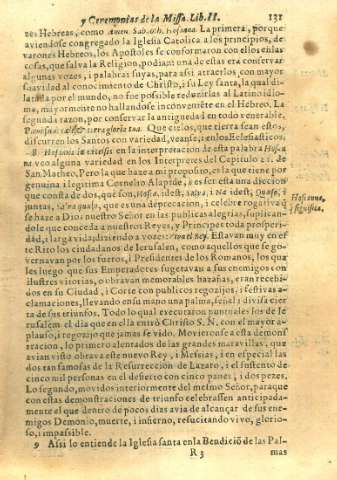 y Ceremonias de la Missa. Lib. II. 131
nes Hebreas, como Amen. Sabaoth. Hosanna. La primera, porque
aviendose congregado la Iglesia Catolica a los principios, de
varones Hebreos, los Apostoles se conformaron con ellos en las
cosas, que salva la Religion, podian: una de estas era conservar
algunas vozes, i palabras suyas, para assi atraerlos, con mayor
suavidad al conocimiento de Christo, i su Ley santa, la qual di-
latada por el mundo, no fue possible reducirlas al Latino idio-
ma, mayormente no hallandose inconveniente en el Hebreo. La
segunda razon, por conservar la antiguedad en todo venerable.
Pleni sunt cæli & terra gloria tua. Que cielos, que tierra sean estos,
discurren los Santos con variedad, veanse, i en los Eclesiasticos.
8 Hosanna in excelsis en la interpretacion de esta palabra Hosa-
na veo alguna variedad en los Interpretes del Capitulo 21. de
San Matheo. Pero la que haze a mi proposito, es la que tiene por
genuina i legitima Cornelio Alapide, i es ser esta una diccion
que consta de dos, que son, Hosia, idest, Salva, i Na idest, Quæso, i
juntas, Salva quæso, que es una deprecacion, i celebre rogativa q̃
se haze a Dios nuestro Señor en las publicas alegrias, suplican-
dole que conceda a nuestros Reyes, y Principe toda prosperi-
dad, i larga vida, diziendo a vozes: viva el Rey. Estavan muy en es-
te Rito los ciudadanos de Ierusalen, como aquellos que se go-
vernavan por los fueros, i Presidentes de los Romanos, los qua-
les luego que sus Emperadores sugetavan a sus enemigos con
ilustres vitorias, o obravan memorables hazañas, eran recebi-
dos en su Ciudad, i Corte con publicos regozijos, i festivas a-
clamaciones, llevando en su mano una palma, señal i divisa cier-
ta de sus triunfos. Todo lo qual executaron puntuales los de Je-
rusalem el dia que en ella entró Christo S. N. con el mayor a-
plauso, i regozijo que jamas se vido. Movieronse a esta demonst
racion, lo primero alentados de las grandes maravillas, que
avian visto obrava este nuevo Rey, i Messias, i en especial las
dos tan famosas de la Resurreccion de Lazaro, i el sustento de
cinco mil personas en el desierto con cinco panes, i dos pezes.
Lo segundo, movidos interiormente del mesmo Señor, para que
con estas demonstraciones de triunfo celebrassen anticipada-
mente el que dentro de pocos dias avia de alcançar de sus ene-
migos Demonio, muerte, i infierno, resucitando vivo, glorio-
so, i impassible.
9 Assi lo entiende la Iglesia santa en la Bendiciõ de las Pal-
R 3 mas
Hosanna,
q̃ significa.